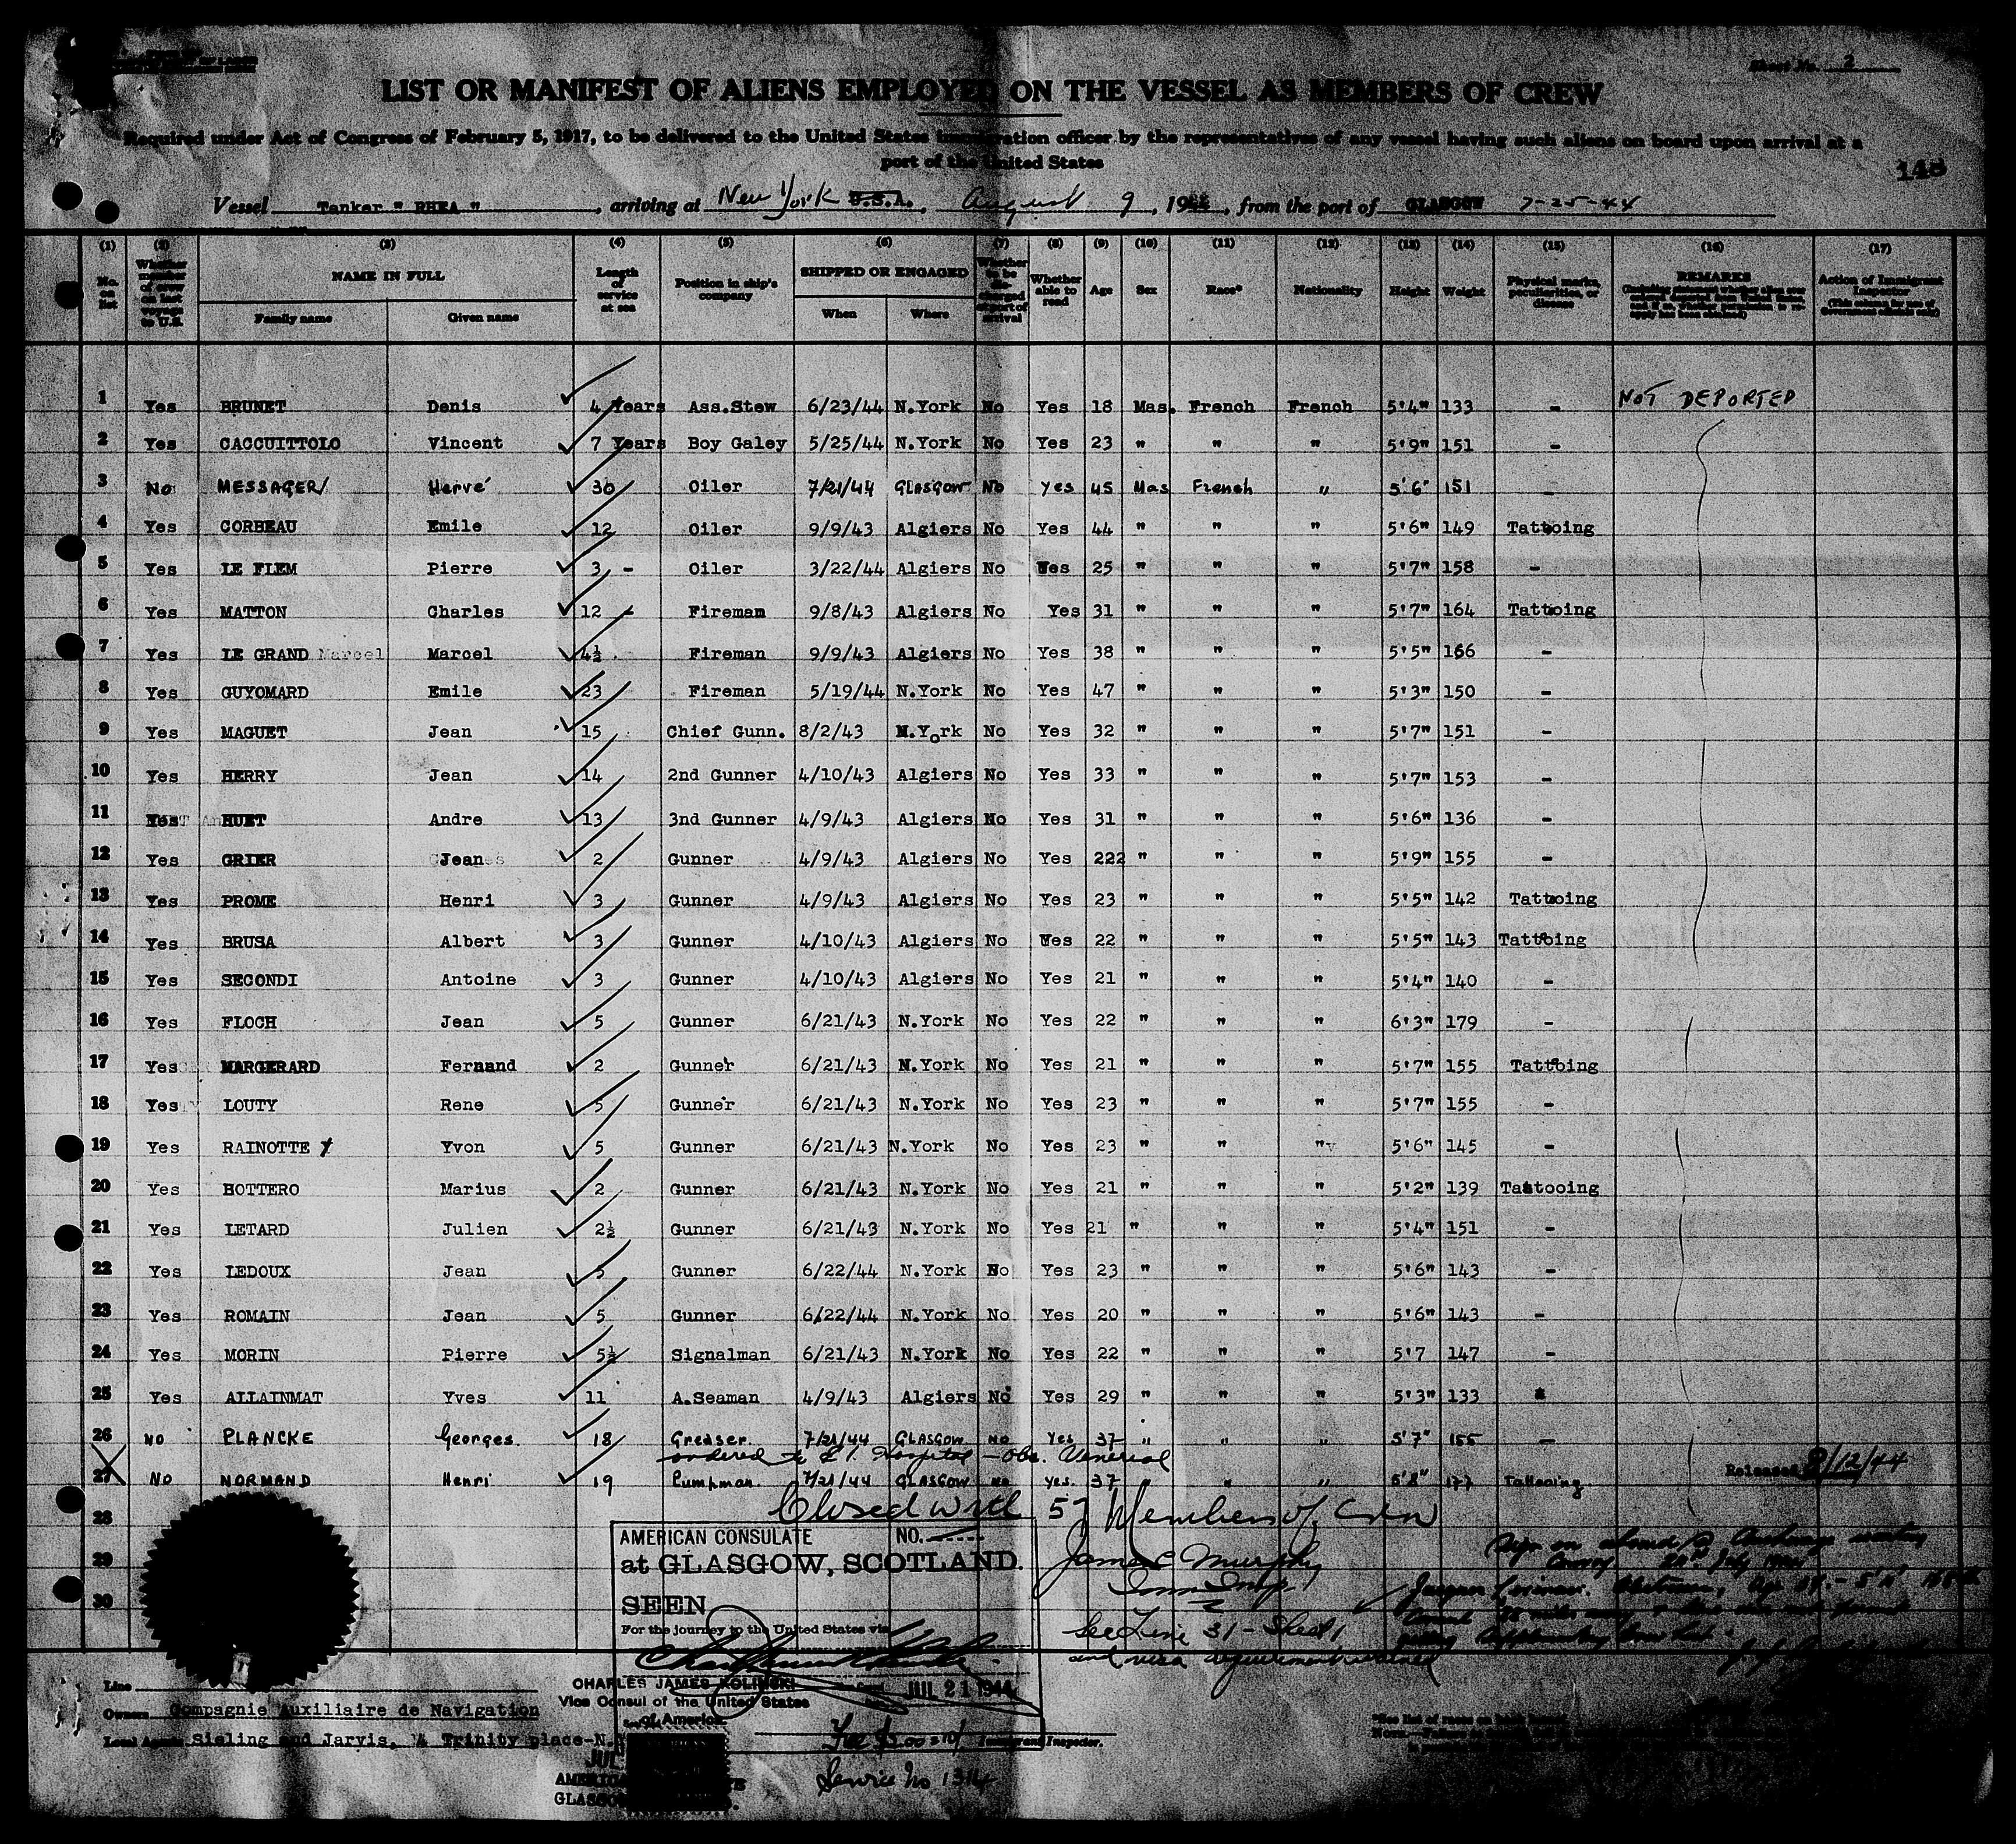 Sheet No. 2
LIST OR MANIFEST OF ALIENS EMPLOYED ON THE VESSEL AS MEMBERS OF CREW
Required under Act of Congress of February 5, 1917, to be delivered to the United States immigration officer by the representatives of any vessel having such aliens on board upon arrival at a
port of the United States
148
Vessel Tanker " RHEA ", arriving at New York U.S.A., August 9, 1944, from the port of GLASGOW 7-25-44
(1) (2) (3) (4) (5) (6) (7) (8) (9) (10) (11) (12) (13) (14) (15) (16) (17)
No. on list
Whether member of crew on last voyage to U.S.
NAME IN FULL
Family name
Given name
Length of service at sea
Position in ship's company
SHIPPED OR ENGAGED
When
Where
Whether to be discharged at port of arrival
Whether able to read
Age
Sex
Race*
Nationality
Height
Weight
Physical marks, peculiarities, or disease
REMARKS
Action of Immigrant Inspector
(This column for use of Government officials only)
1 Yes BRUNET Denis 4 Years Ass.Stew 6/23/44 N.York No Yes 18 Mas. French French 5'4" 133 - NOT DEPORTED
2 Yes CACCUITTOLO Vincent 7 Years Boy Galey 5/25/44 N.York No Yes 23 " " " 5'9" 151 -
3 No MESSAGER Hervé 30 Oiler 7/21/44 GLASGOW No Yes 45 Mas French " 5'6" 151 -
4 Yes CORBEAU Emile 12 Oiler 9/9/43 Algiers No Yes 44 " " " 5'6" 149 Tattoing
5 Yes LE FLEM Pierre 3 - Oiler 3/22/44 Algiers No Yes 25 " " " 5'7" 158 -
6 Yes MATTON Charles 12 - Fireman 9/8/43 Algiers No Yes 31 " " " 5'7" 164 Tattoing
7 Yes LE GRAND Marcel Marcel 4½ Fireman 9/9/43 Algiers No Yes 38 " " " 5'5" 166 -
8 Yes GUYOMARD Emile 23 Fireman 5/19/44 N.York No Yes 47 " " " 5'3" 150 -
9 Yes MAGUET Jean 15 Chief Gunn. 8/2/43 N.York No Yes 32 " " " 5'7" 151 -
10 Yes HERRY Jean 14 2nd Gunner 4/10/43 Algiers No Yes 33 " " " 5'7" 153 -
11 Yes HUET Andre 13 3nd Gunner 4/9/43 Algiers No Yes 31 " " " 5'6" 136 -
12 Yes GRIER Jean 2 Gunner 4/9/43 Algiers No Yes 222 " " " 5'9" 155 -
13 Yes PROME Henri 3 Gunner 4/9/43 Algiers No Yes 23 " " " 5'5" 142 Tattoing
14 Yes BRUSA Albert 3 Gunner 4/10/43 Algiers No Yes 22 " " " 5'5" 143 Tattoing
15 Yes SECONDI Antoine 3 Gunner 4/10/43 Algiers No Yes 21 " " " 5'4" 140 -
16 Yes FLOCH Jean 5 Gunner 6/21/43 N.York No Yes 22 " " " 6'3" 179 -
17 Yes MARGERARD Fernand 2 Gunner 6/21/43 N.York No Yes 21 " " " 5'7" 155 Tattoing
18 Yes LOUTY Rene 5 Gunner 6/21/43 N.York No Yes 23 " " " 5'7" 155 -
19 Yes RAINOTTE Yvon 5 Gunner 6/21/43 N.York No Yes 23 " " " 5'6" 145 -
20 Yes BOTTERO Marius 2 Gunner 6/21/43 N.York No Yes 21 " " " 5'2" 139 Tattooing
21 Yes LETARD Julien 2½ Gunner 6/21/43 N.York No Yes 21 " " " 5'4" 151 -
22 Yes LEDOUX Jean 5 Gunner 6/22/44 N.York No Yes 23 " " " 5'6" 143 -
23 Yes ROMAIN Jean 5 Gunner 6/22/44 N.York No Yes 20 " " " 5'6" 143 -
24 Yes MORIN Pierre 5½ Signalman 6/21/43 N.York No Yes 22 " " " 5'7 147 -
25 Yes ALLAINMAT Yves 11 A.Seaman 4/9/43 Algiers No Yes 29 " " " 5'3" 133
26 No PLANCKE Georges 18 Greaser 7/21/44 GLASGOW No Yes 37 " " " 5'7" 155 -
ordered to E I. Hospital - Obs. Venerial
27 No NORMAND Henri 19 Pumpman 7/21/44 GLASGOW No Yes. 37 " " " 177 Tattooing Released 8/12/44
28
Closed with 57 Members of Crew
29
30
James C Murphy
Imm Insp.
See Line 31 - Sheet 1
and visa requirement
AMERICAN CONSULATE NO.
at GLASGOW, SCOTLAND.
SEEN
For the journey to the United States via
CHARLES JAMES KOLINSKI
Vice Consul of the United States
of America.
JUL 21 1944
Line
Owners Compagnie Auxiliaire de Navigation
Local Agents Sieling and Jarvis, Trinity place-N.
Immigrant Inspector.
Service No 1314